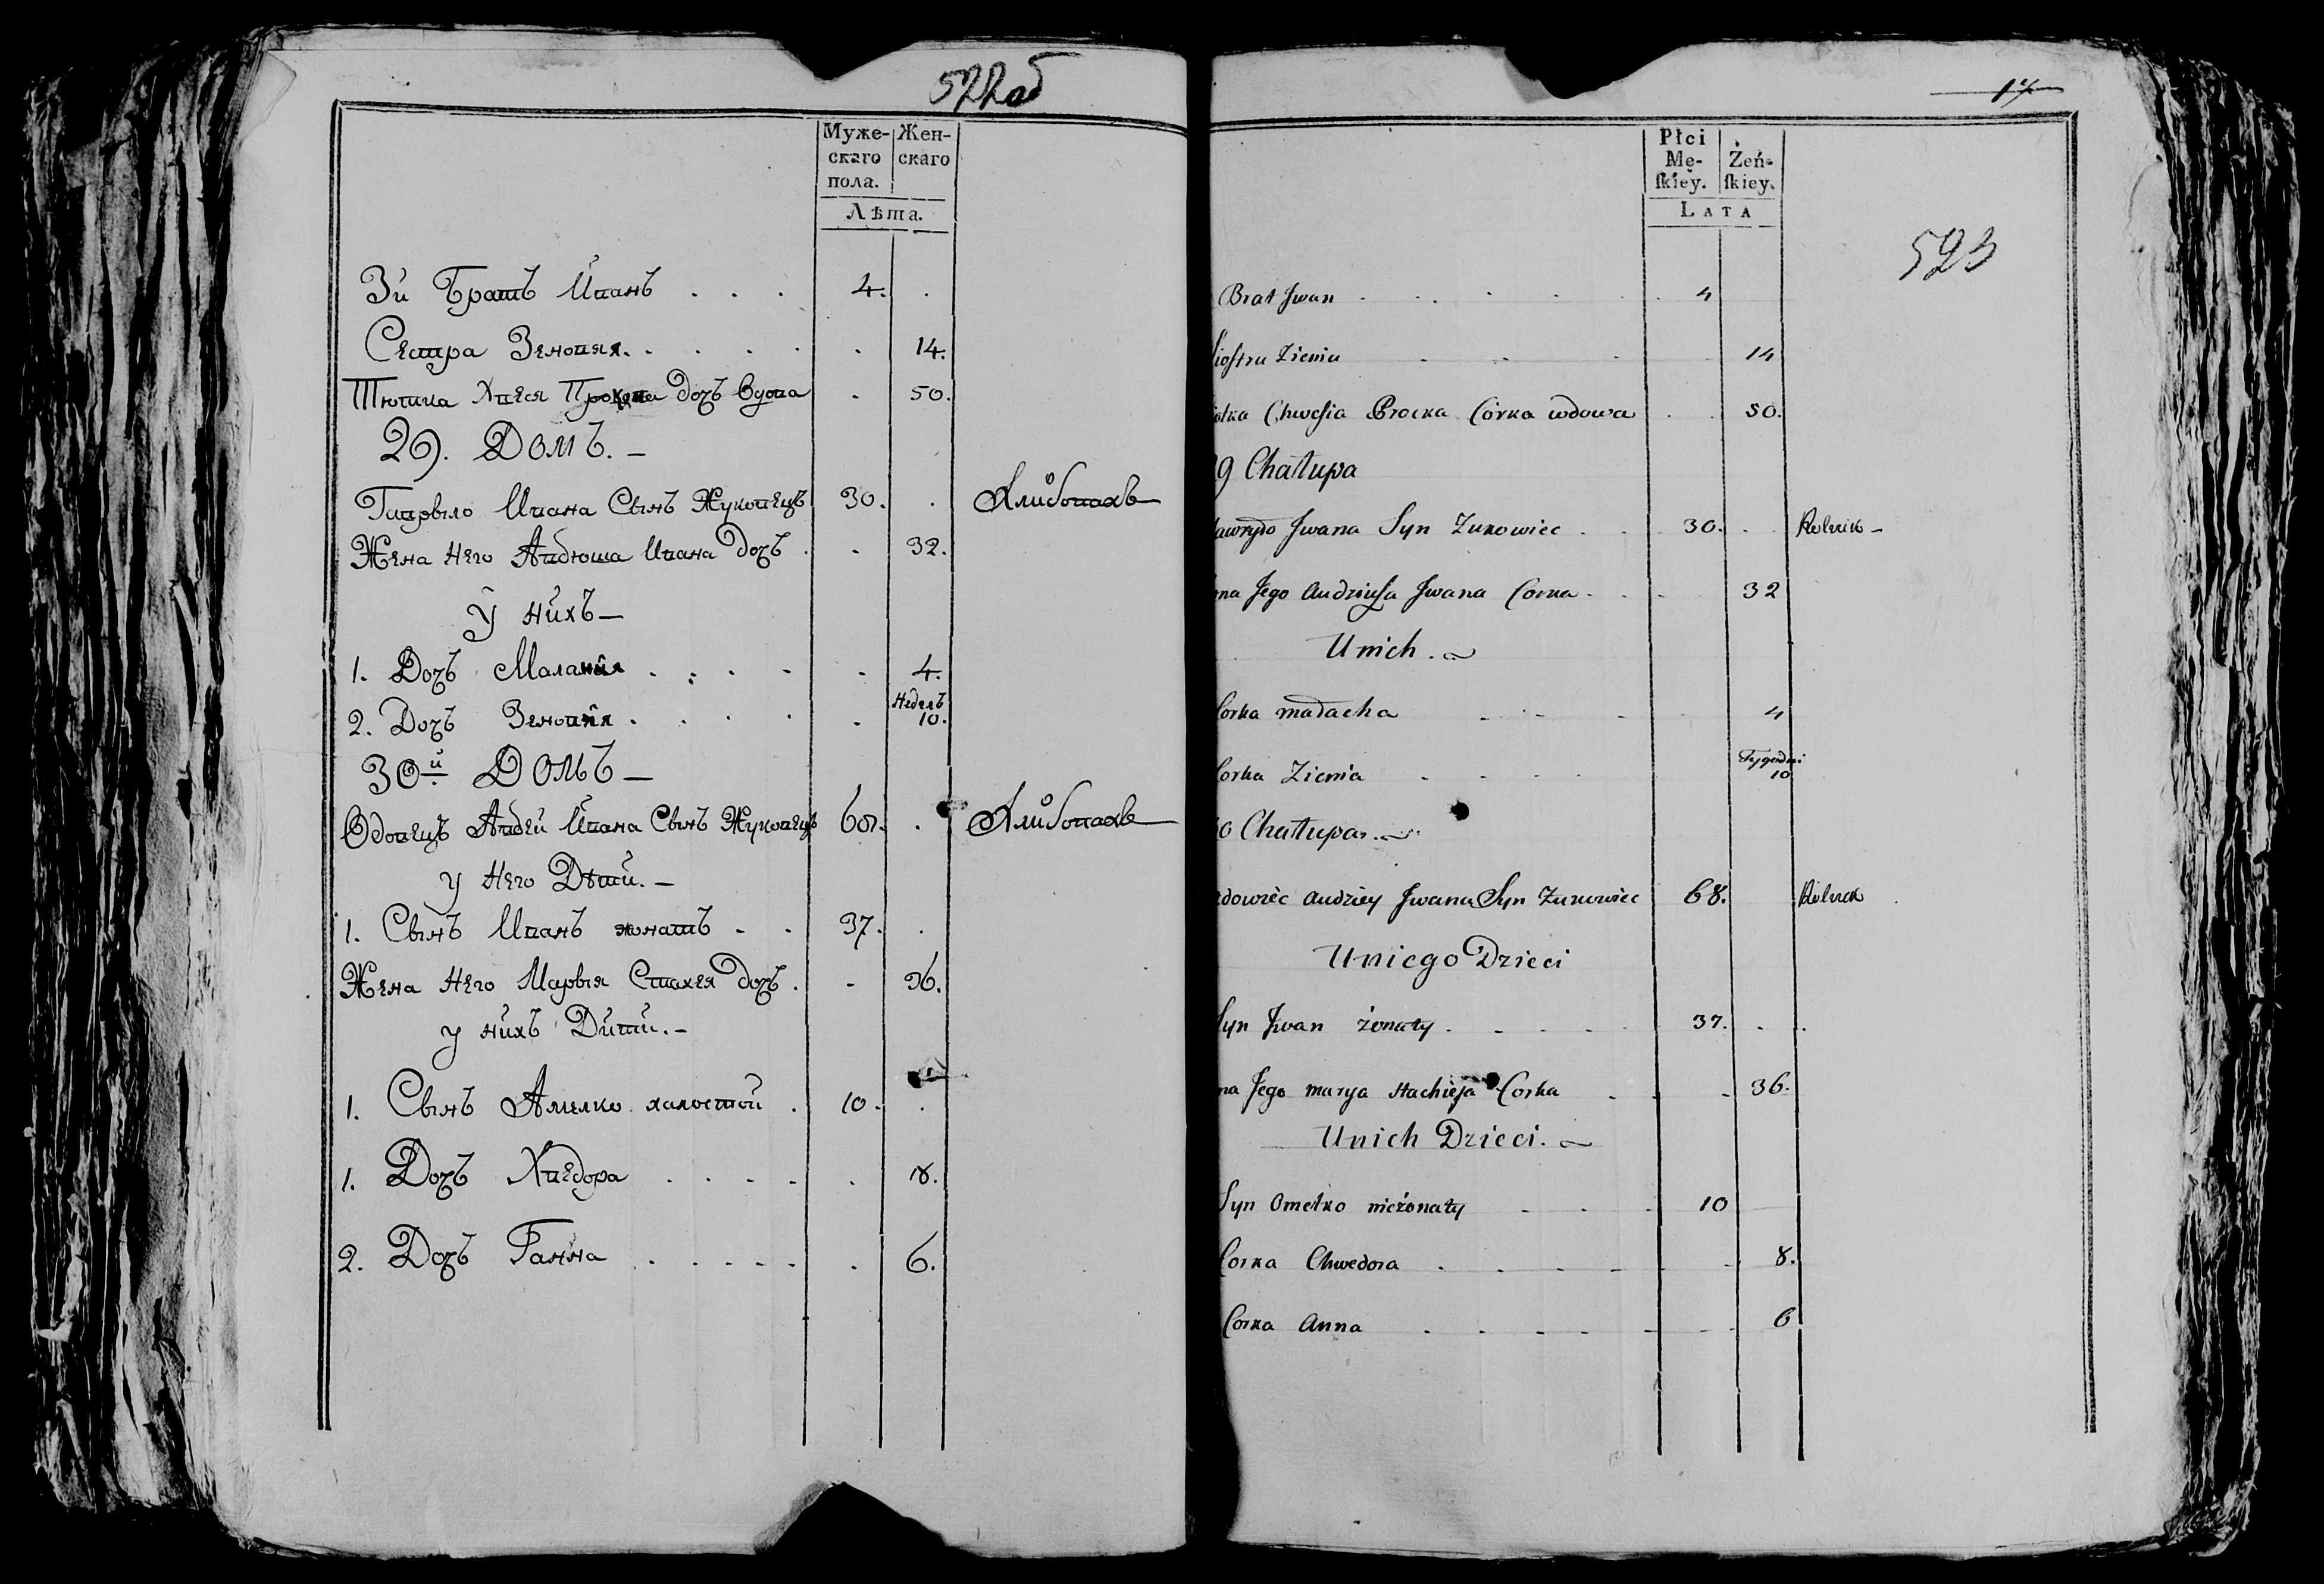 522 об
Муже-
скаго
пола.
Жен-
скаго
Лѣта.
3й Братъ Иванъ . . . 4. .
Сестра Зеновия. . . . . . 14.
Тютка Хвеся Процка дочъ вдова . 50.
29. Домъ. —
Гаврыло Ивана Сынъ Жуковецъ 30. . Хлибопахъ
Жена Него Авдюша Ивана дочъ . . 32.
У нихъ —
1. Дочъ Малания . . . . . 4.
2. Дочъ Зеновия . . . . . Недель 10.
30й Домъ —
Вдовецъ Авдей Ивана Сынъ Жуковецъ 68. . Хлибопахъ
у Него Дѣти. —
1. Сынъ Иванъ жонатъ . . 37. .
Жена Него Марыя Стахея дочъ . . 36.
у нихъ Дити. —
1. Сынъ Амелко халостой . 10. .
1. Дочъ Хведора . . . . . 8.
2. Дочъ Ганна . . . . . . 6.
17
523
Płci
Mę-
ſkiey.
Żeń-
ſkiey.
LATA
Brat Jwan . . . . . . 4
Siostra Zienia . . . . 14
iotka Chwesia Procka Córka wdowa . . 50.
29 Chałupa
awryło Jwana Syn Zukowiec . . 30. . Rolnik —
ona Jego Audziusa Jwana Corka . . . 32
U nich .
Corka madacha . . . . 4
Corka Zienia . . . . Tygodni 10
30 Chałupa .
dowiec Audziey Jwana Syn Zukowiec 68. Rolnik
U niego Dzieci
Syn Jwan żonaty . . . . . 37. . .
na Jego marya Stachieja Corka . . . 36.
U nich Dzieci .
Syn Omelko nieżonaty . . . 10
Corka Chwedora . . . . . . 8.
Corka Anna . . . . . . 6